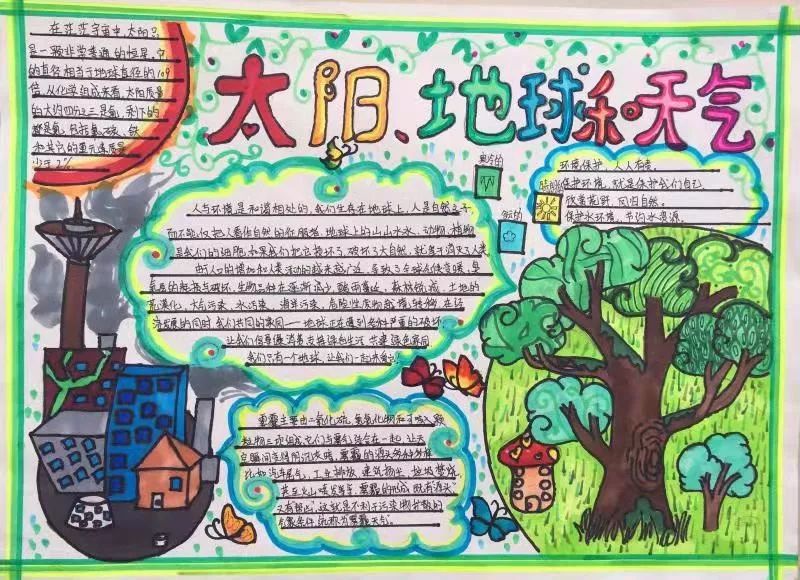 太阳、地球和天气
在莎莎宇宙中,太阳只
是一颗非常普通的恒星,它
的直径相当于地球直径的109
倍,从化学组成来看,太阳质量
的大约四分之三是氢,剩下的
都是氦,包括氧、碳、铁
和其它的重元素质量
少于2%
人与环境是和谐相处的,我们生存在地球上,人是自然之子,
而不能仅把人看作自然的征服者,地球上的山山水水、动物、植物
是我们的细胞,如果我们把它毁坏了,破坏了大自然,就等于消灭了人类
由于人口的增加和人类活动的越来越广泛,导致了全球气候变暖,臭
氧层的耗损与破坏,生物品种在逐渐减少,酸雨蔓延,森林锐减,土地的
荒漠化,大气污染,水污染,海洋污染,危险性废物越境转移,在经
济发展的同时,我们共同的家园——地球正在遭到各种严重的破坏
让我们倡导
绿色生活 共建绿色家园
我们只有一个地球,让我们一起来
奥冷的
环境保护,人人有责。
保护环境,就是保护我们自己
欣赏花舒,回归自然。
保护水环境,节约水资源。
雾霾主要由二氧化硫,氮氧化物和可吸入颗
粒物三项组成,它们与雾气结合在一起,让天
空瞬间变得阴沉灰暗,雾霾的源头多种多样
比如汽车尾气,工业排放,建筑扬尘,垃圾焚烧
甚至火山喷发等等,雾霾的形成既有源头
又有帮凶,这就是不利于污染物扩散的